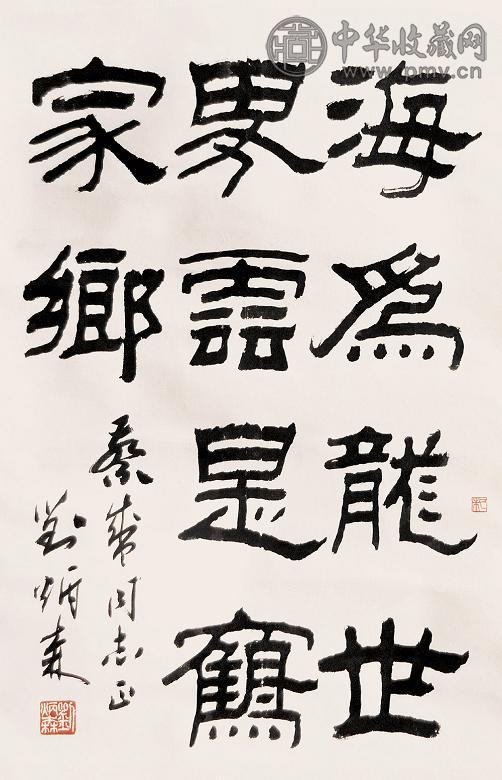 中华收藏网
www.pmv.cn
海爲龍世
界雲是鶴
家鄉
同志正
劉炳森
劉炳森